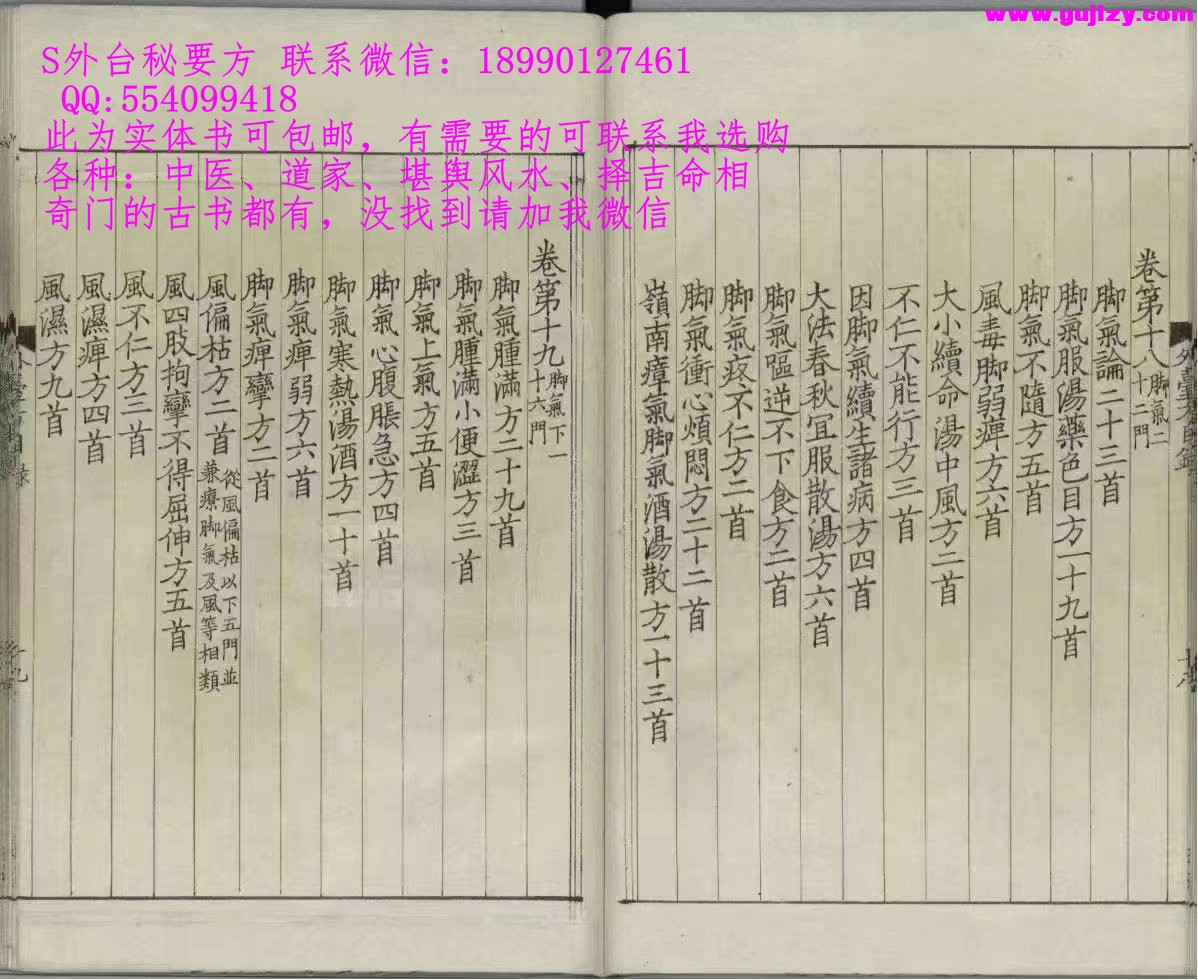 www.gujizy.com
S外台秘要方 联系微信：18990127461
QQ:554099418
此为实体书可包邮，有需要的可联系我选购
各种：中医、道家、堪舆风水、择吉命相
奇门的古书都有，没找到请加我微信
卷第十八脚氣二十二門
脚氣論二十三首
脚氣服湯藥色目方一十九首
脚氣不隨方五首
風毒脚弱痺方六首
大小續命湯中風方二首
不仁不能行方三首
因脚氣續生諸病方四首
大法春秋宜服散湯方六首
脚氣嘔逆不下食方二首
脚氣疼不仁方二首
脚氣衝心煩悶方二十二首
嶺南瘴氣脚氣酒湯散方一十三首
卷第十九脚氣下一十六門
脚氣腫滿方二十九首
脚氣腫滿小便澀方三首
脚氣上氣方五首
脚氣心腹脹急方四首
脚氣寒熱湯酒方一十首
脚氣痺弱方六首
脚氣痺攣方二首
風偏枯方二首從風偏枯以下五門並兼療脚氣及風等相類
風四肢拘攣不得屈伸方五首
風不仁方三首
風濕痺方四首
風濕方九首